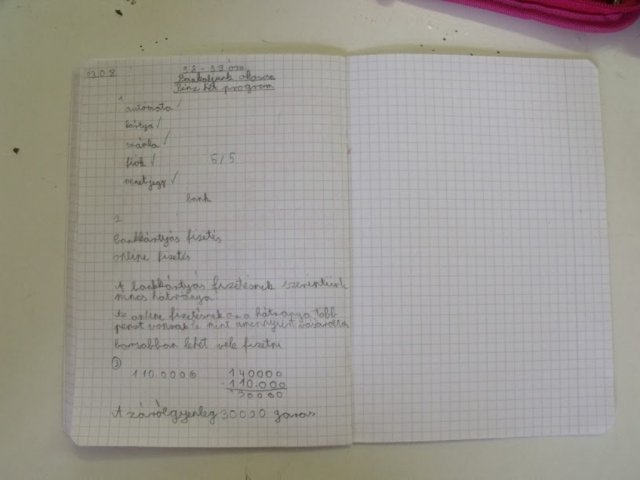 03.08.
38-39. óra
Bankoljunk okosan
Pénz hét program
1
automata ✓
kártya ✓
számla ✓
fiók ✓ 5/5
menetjegy ✓
bank
2
bankkártyás fizetés
online fizetés
A bankkártyás fizetésnek szerintünk
nincs hátránya.
Az online fizetésnek az a hátránya, több
pénzt vonnak le mint amennyiért vásároltál
hosabban lehet vele fizetni
3
110.000 140000
-110.000
30000
A záróegyenleg 30000 garas